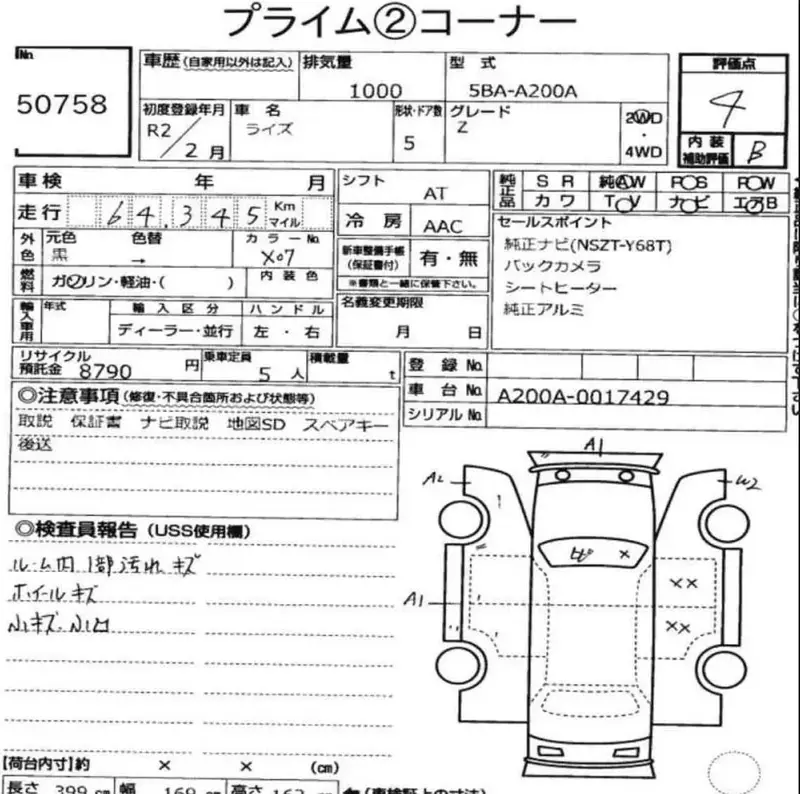 プライム②コーナー
No. 50758
車歴 (自家用以外は記入)
排気量 1000
型式 5BA-A200A
評価点 4
初度登録年月 R2/2月
車名 ライズ
形状・ドア数 5
グレード Z
2WD・4WD
内装補助評価 B
車検 年 月
シフト AT
純正品 SR 純AW P○S P○W
カワ T○V カ○ビ エ○B
走行 64,345 Km マイル
冷房 AAC
セールスポイント
純正ナビ(NSZT-Y68T)
バックカメラ
シートヒーター
純正アルミ
外色 元色 黒 色替 → カラーNo. X07
新車整備手帳(保証書付) 有・無
※書類と一緒に保管下さい。
燃料 ガソリン・軽油・( ) 内装色
名義変更期限 月 日
輸入車用 年式 輸入区分 ハンドル
ディーラー・並行 左・右
リサイクル預託金 8790 円
乗車定員 5 人
積載量 t
登録No.
車台No. A200A-0017429
シリアルNo.
◎注意事項 (修復・不具合箇所および状態等)
取説 保証書 ナビ取説 地図SD スペアキー
後送
◎検査員報告 (USS使用欄)
ルーム内1部汚れ キズ
ホイルキズ
小キズ.小凹
A1
A2
W2
A1
×
××
××
【荷台内寸】約 × × (cm)
長さ 399 幅 169 高さ 163 (車検証上の寸法)